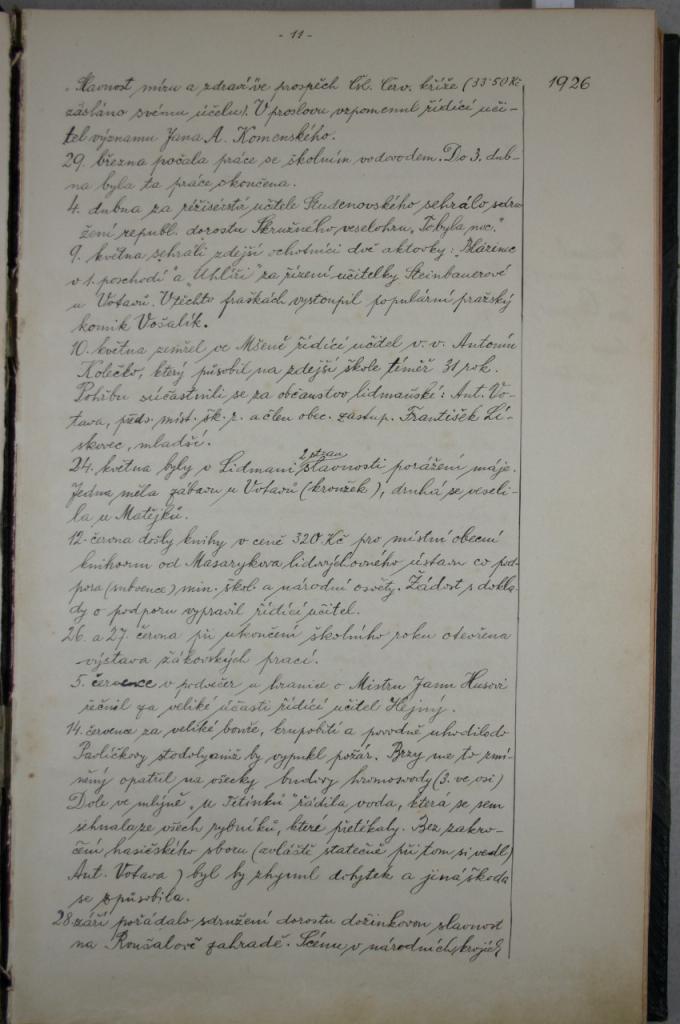 - 11 -
1926
"Slavnost míru a zdraví" ve prospěch Čsl. Červ. kříže (33·50 Kč
zasláno svému účelu). V proslovu vzpomenul řídící uči-
tel významu Jana A. Komenského.
29. března počala práce se školním vodovodem. Do 3. dub-
na byla ta práce skončena.
4. dubna za režisérství učitele Studenovského sehrálo sdru-
žení republ. dorostu Skružného veselohru "To byla noc."
9. května sehráli zdejší ochotníci dvě aktovky: "Blázinec
v 1. poschodí" a "Uhlíři" za řízení učitelky Steinbauerové
u Votavů. V těchto fraškách vystoupil populární pražský
komik Vošalík.
10. května zemřel ve Mšeně řídící učitel v. v. Antonín
Kolečko, který působil na zdejší škole téměř 31 rok.
Pohřbu súčastnili se za občanstvo lidmaňské: Ant. Vo-
tava, předs. míst. šk. r. a člen obec. zastup. František Li-
skovec, mladší.
24. května byly v Lidmani 2 stran slavnosti poražení máje.
Jedna měla zábavu u Votavů (kroužek), druhá se veseli-
la u Matějků.
12. června došly knihy v ceně 320 Kč pro místní obecní
knihovnu od Masarykova lidovýchovného ústavu co pod-
pora (subvence) min. škol. a národní osvěty. Žádost s dokla-
dy o podporu vypravil řídící učitel.
26. a 27. června při ukončení školního roku otevřena
výstava žákovských prací.
5. července v podvečer u hranice o Mistru Janu Husovi
řečnil za veliké účasti řídící učitel Hejný.
14. července za veliké bouře, krupobití a povodně uhodilo do
Pavlíčkovy stodoly aniž by vypukl požár. Brzy na to zmí-
něný opatřil na všecky budovy hromosvody (3. ve osi)
Dole ve mlýně "u Tetínků" řádila voda, která se sem
sehnala ze všech rybníků, které přetékaly. Bez zakro-
čení hasičského sboru (zvláště statečně při tom si vedl
Ant. Votava) byl by zhynul dobytek a jiná škoda
se způsobila.
28. září pořádalo sdružení dorostu dožinkovou slavnost
na Roušalově zahradě. Scénu v národních krojích